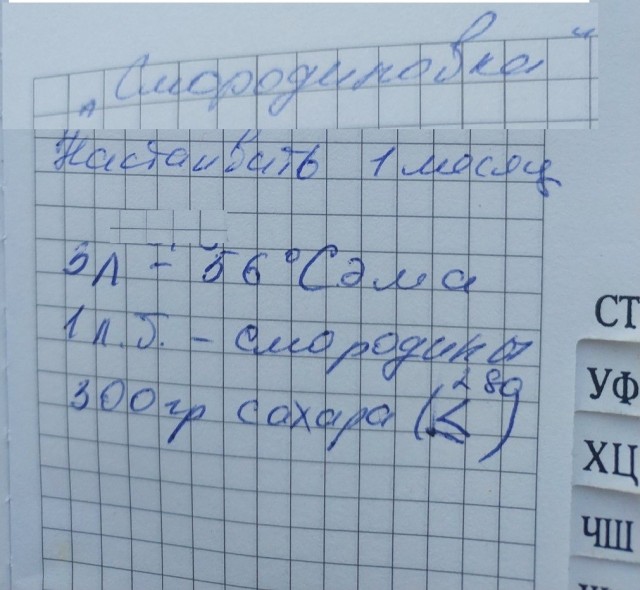 „Смородиновка"
Настаивать 1 месяц
5л - 56° Сэма
1 л.б. - смородины
300гр сахара (≤ 280)
СТ
УФ
ХЦ
ЧШ